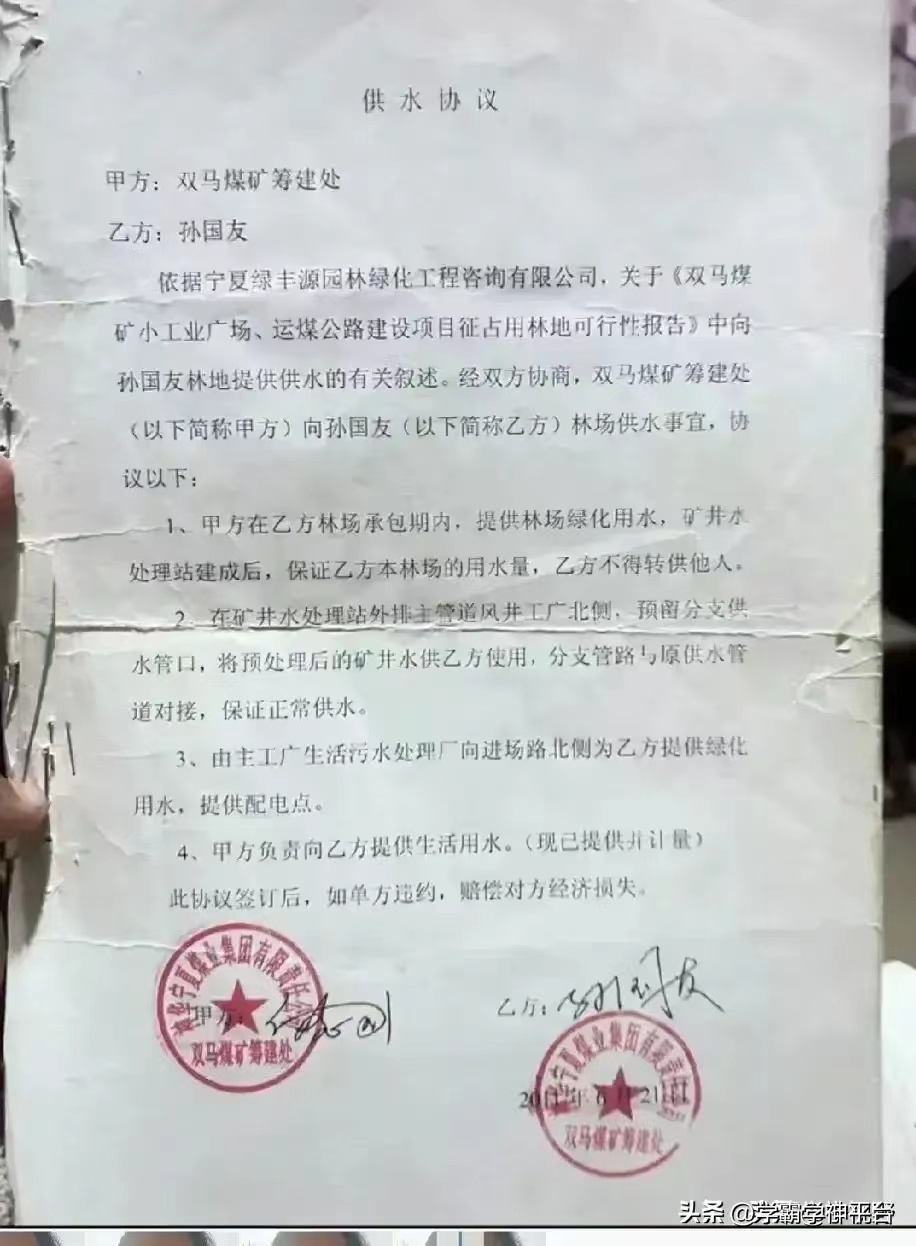 供水协议
甲方：双马煤矿筹建处
乙方：孙国友
依据宁夏绿丰源园林绿化工程咨询有限公司，关于《双马煤
矿小工业广场、运煤公路建设项目征占用林地可行性报告》中向
孙国友林地提供供水的有关叙述。经双方协商，双马煤矿筹建处
（以下简称甲方）向孙国友（以下简称乙方）林场供水事宜，协
议以下：
1、甲方在乙方林场承包期内，提供林场绿化用水，矿井水
处理站建成后，保证乙方本林场的用水量，乙方不得转供他人。
2、在矿井水处理站外排主管道风井工广北侧，预留分支供
水管口，将预处理后的矿井水供乙方使用，分支管路与原供水管
道对接，保证正常供水。
3、由主工广生活污水处理厂向进场路北侧为乙方提供绿化
用水，提供配电点。
4、甲方负责向乙方提供生活用水。（现已提供并计量）
此协议签订后，如单方违约，赔偿对方经济损失。
宁夏煤业集团有限责任
甲方：
双马煤矿筹建处
乙方：孙国友
宁夏煤业集团有限责任
2011年 月21日
双马煤矿筹建处
头条 @学霸学神平台